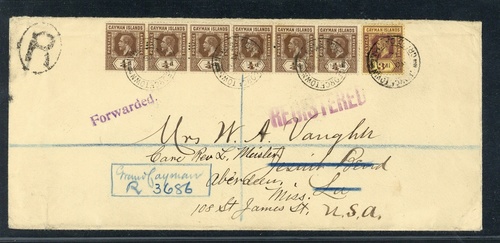 CAYMAN ISLANDS CAYMAN ISLANDS CAYMAN ISLANDS CAYMAN ISLANDS CAYMAN ISLANDS CAYMAN ISLANDS CAYMAN ISLANDS CAYMAN ISLANDS
R
Forwarded.
REGISTERED
Mrs W. A. Vaughn
Care Rev L. Meister
Aberdeen,
Miss. La
108 St James St.
U.S.A.
Grand Cayman
R 3686